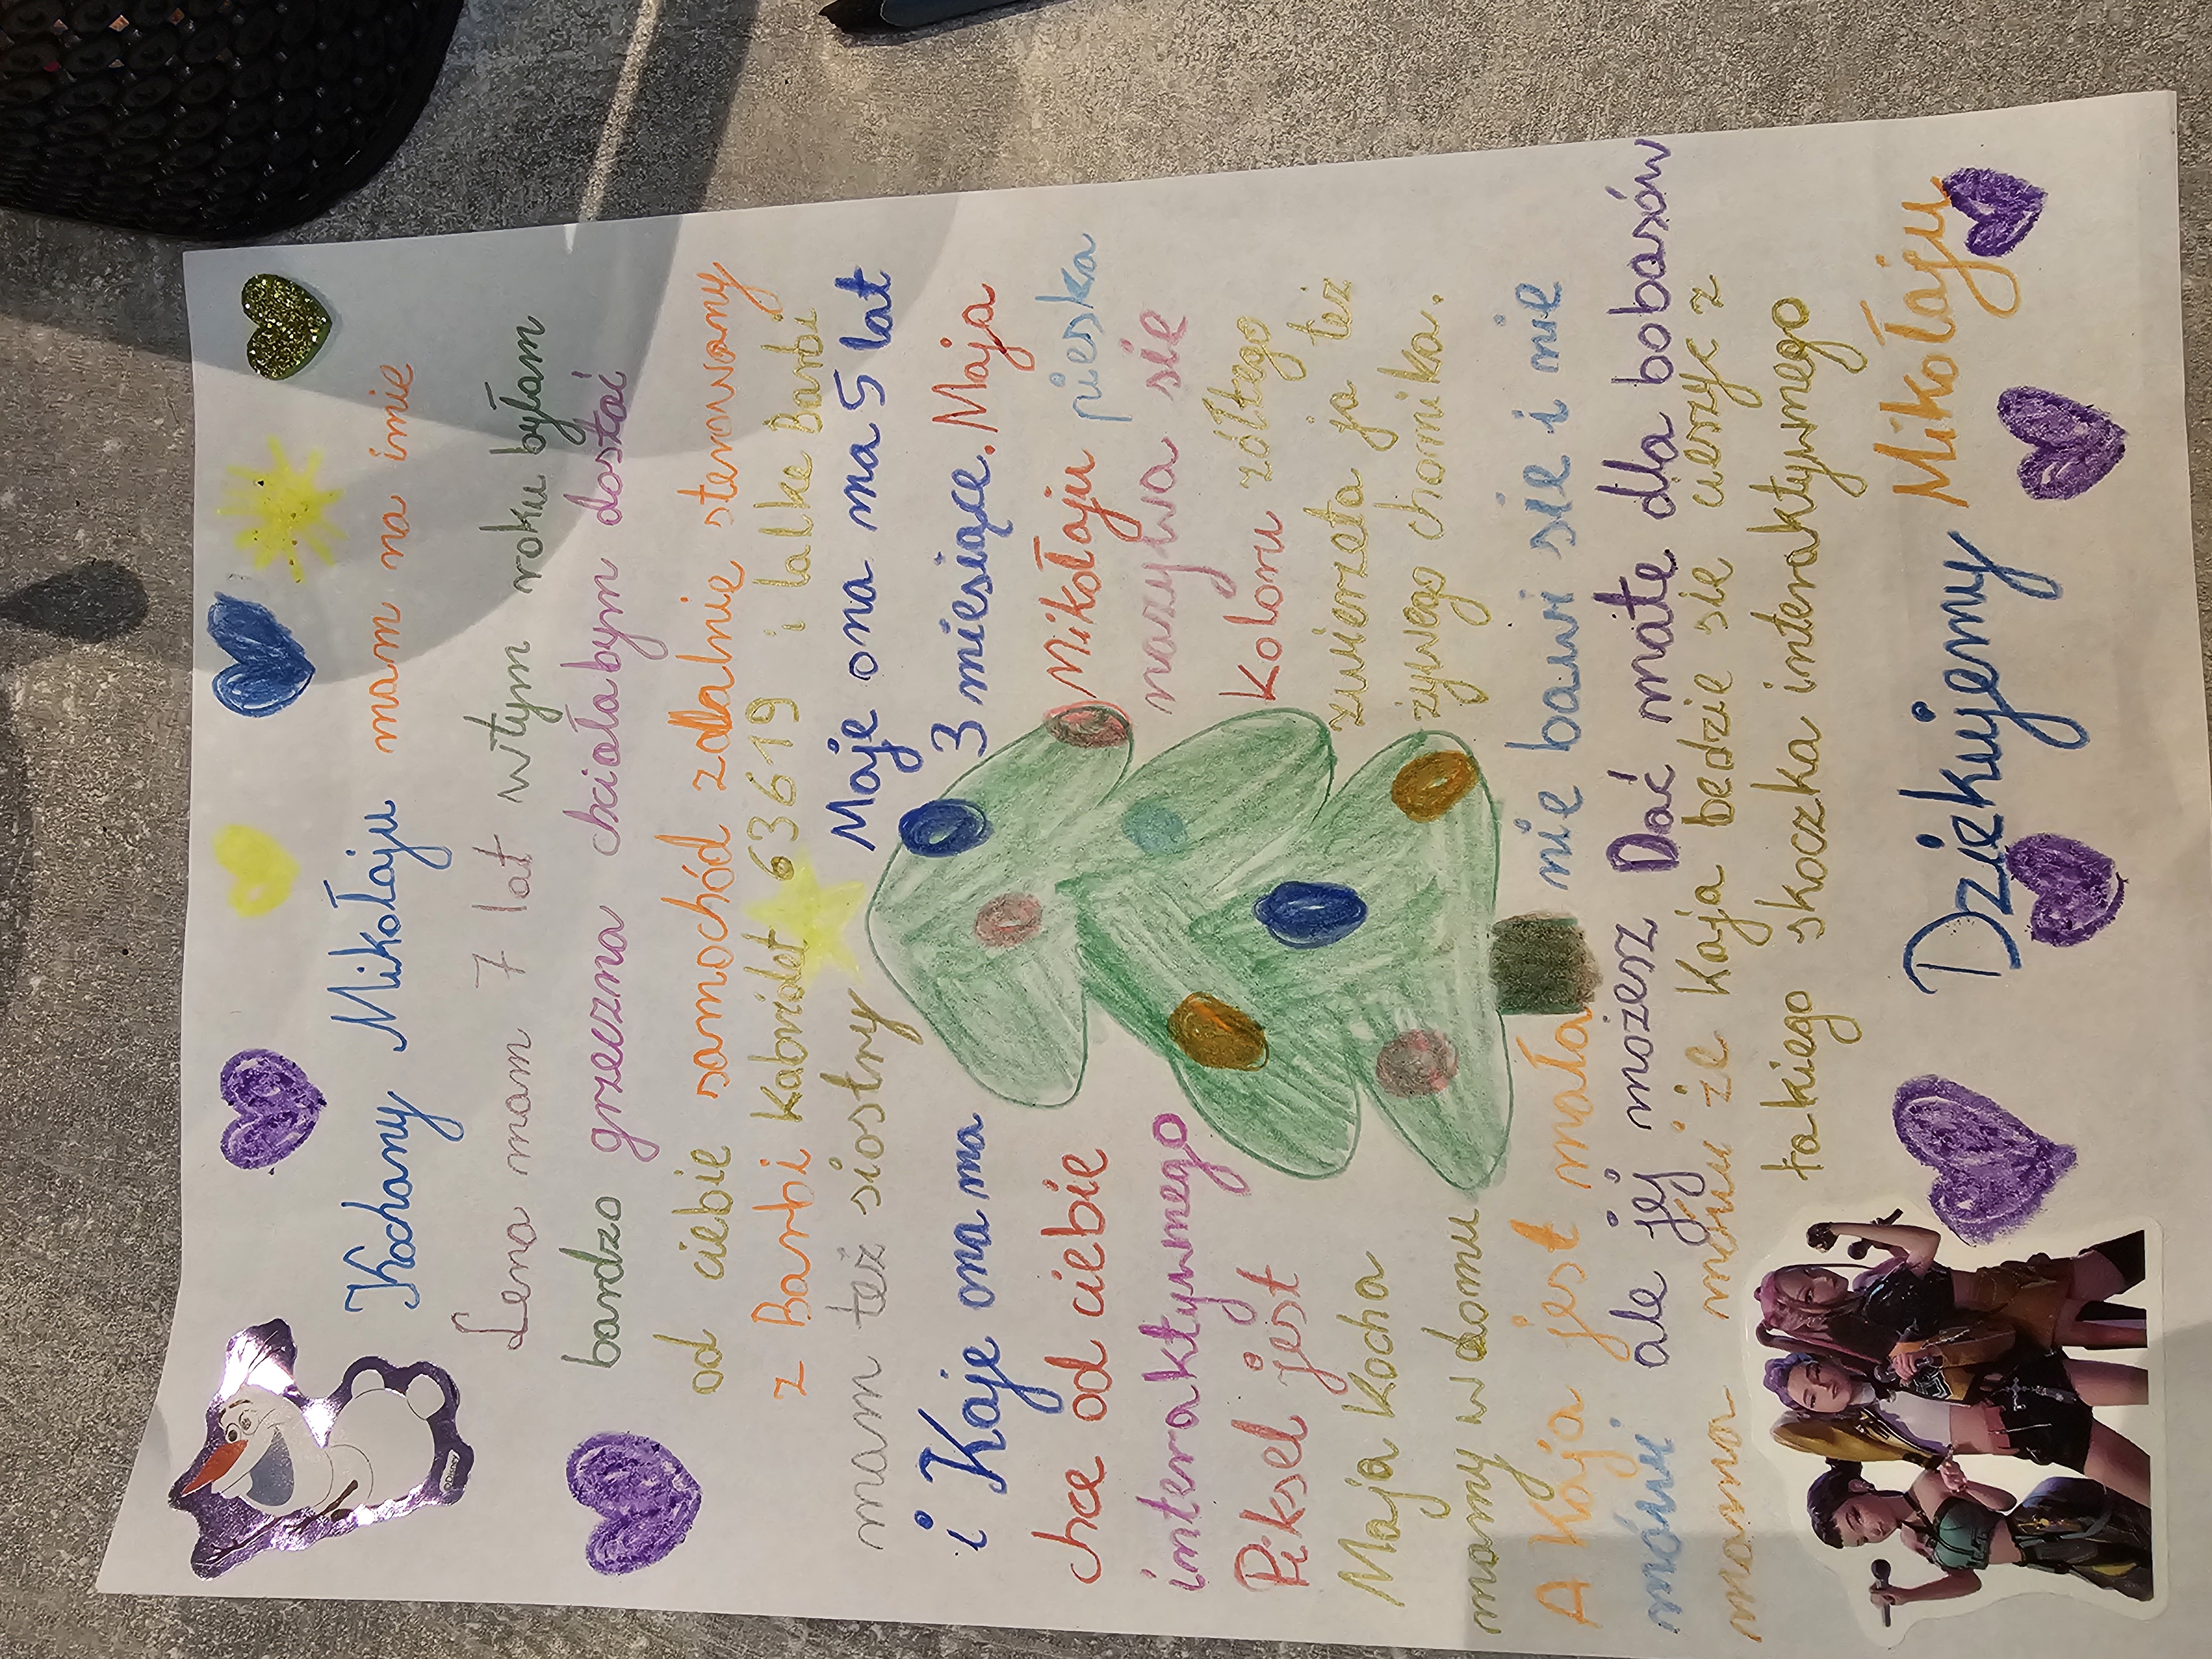 Kochany Mikołaju mam na imie
Lena mam 7 lat wtym roku byłam
bardzo grzeczna chciałabym dostać
od ciebie samochód zdalnie sterowany
z Barbi kabriolet 63619 i lalke Barbi
mam też siostry Maje ona ma 5 lat
i Kaje ona ma 3 miesiące. Maja
chce od ciebie Mikołaju pieska
interaktywnego nazywa się
Piksel jest koloru żółtego
Maja kocha zwierzeta ja też
mamy w domu żywego chomika.
A Kaja jest mała nie bawi sie i nie
mówi ale jej możesz Dać mate dla bobasów
mama mówi że Kaja bedzie sie cieszyć z
takiego skoczka interaktywnego
Dziekujemy Mikołaju
©Disney